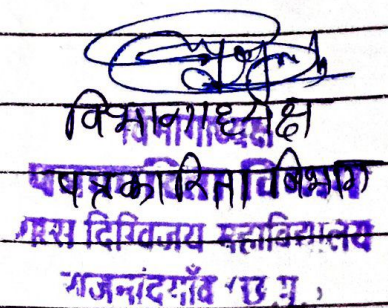 विभागाध्यक्ष
पत्रकारिता विभाग
शास दिग्विजय महाविद्यालय
राजनांदगाँव (छ.ग.)